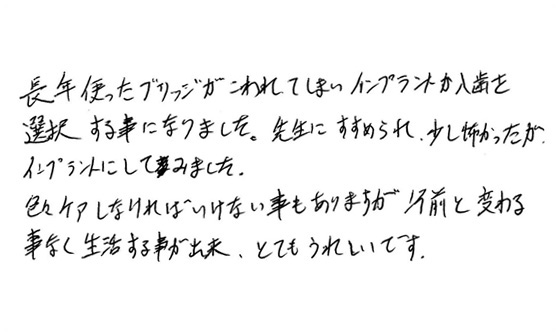 長年使ったブリッジがこわれてしまいインプラントか入歯を
選択する事になりました。先生にすすめられ、少し怖かったが
インプラントにしてみました。
色々ケアしなければいけない事もありますが以前と変わる
事なく生活する事が出来、とてもうれしいです。